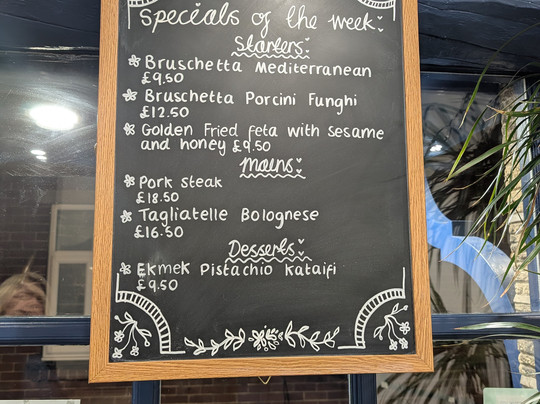 Specials of the week:
Starters:
Bruschetta Mediterranean
£9.50
Bruschetta Porcini Funghi
£12.50
Golden Fried feta with sesame
and honey £9.50
Mains:
Pork steak
£18.50
Tagliatelle Bolognese
£16.50
Desserts:
Ekmek Pistachio Kataifi
£9.50